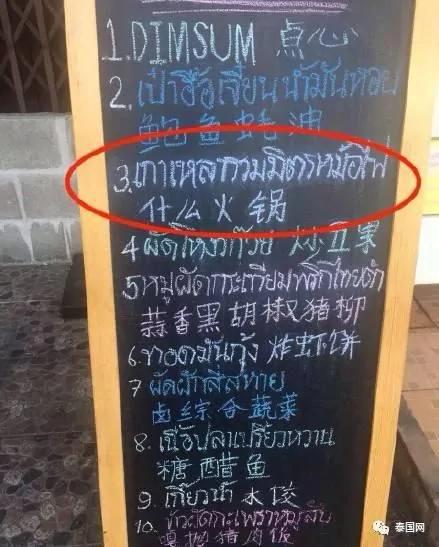 1. DIMSUM 点心
2. เป๋าฮื้อเจี๋ยนน้ำมันหอย
鲍鱼蚝油
3. เกาเหลารวมมิตรหม้อไฟ
什么火锅
4 ผัดโหงวก๊วย 炒豆果
5. หมูผัดกระเทียมพริกไทยดำ
蒜香黑胡椒猪柳
6. ทอดมันกุ้ง 炸虾饼
7 ผัดผักสี่สหาย
卤综合蔬菜
8. เนื้อปลาเปรี้ยวหวาน
糖醋鱼
9. เกี๊ยวน้ำ 水饺
10. ข้าวผัดกะเพราหมูสับ
嘎抛猪肉饭
泰国网